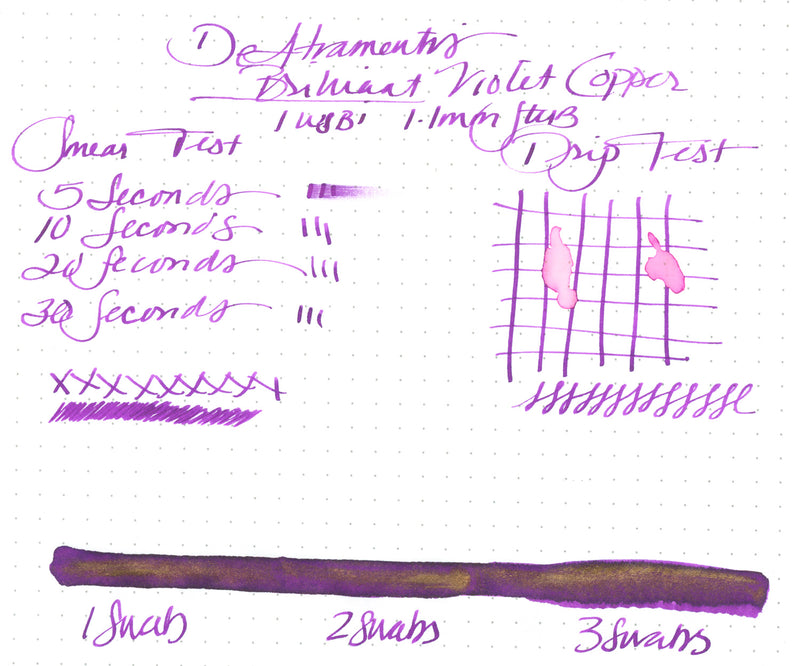 De Atramentis
Brilliant Violet Copper
TWSBI 1.1mm Stub
Smear Test
Drip Test
5 Seconds
10 Seconds
20 Seconds
30 Seconds
1 Swab
2 Swabs
3 Swabs